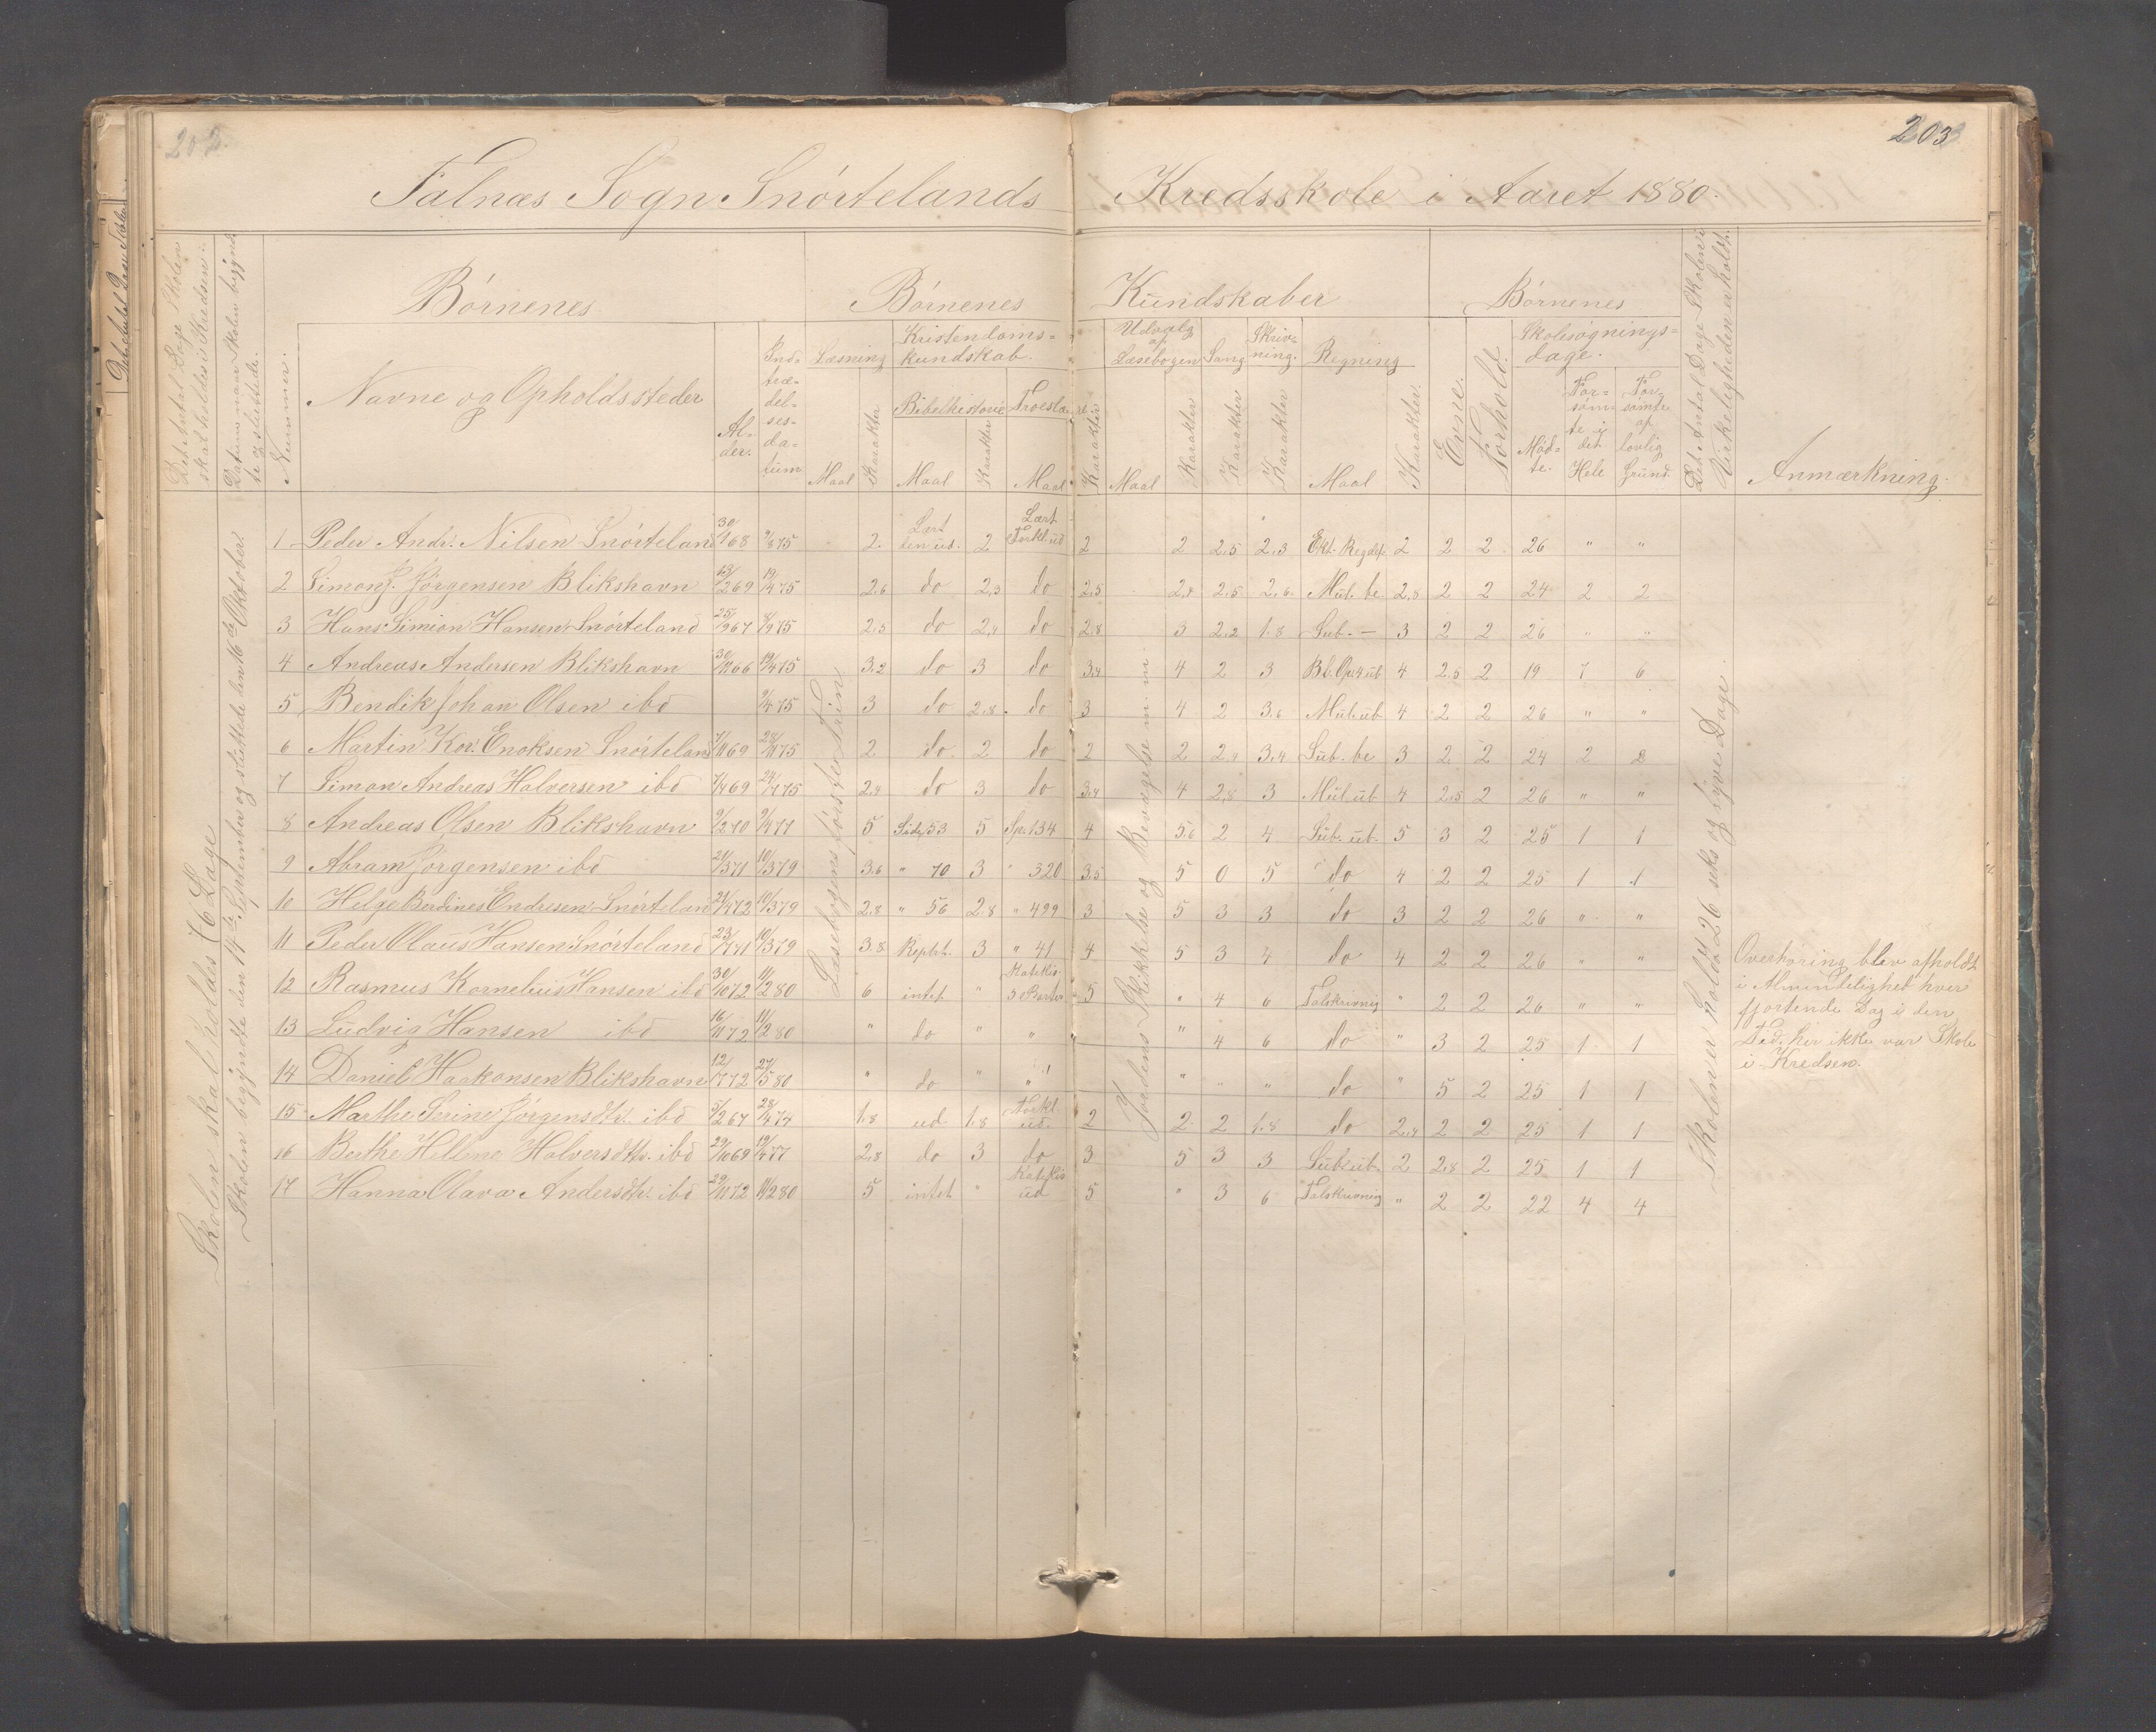 202.
203
Falnæs Sogn Snørtelands Kredsskole i Aaret 1880.
Det Antal Dage Skolen skal holdes i Kredsen.
Datum naar Skolen begyndte og sluttede.
Nummer.
Børnenes
Navne og Opholdssteder
Alder.
Indtrædelsesdatum
Børnenes Kundskaber
Læsning
Maal Karakter
Kristendomskundskab.
Bibelhistorie Troeslære
Maal Karakter Maal Karakter
Udvalg af Læsebogen
Maal Karakter
Sang
Karakter
Skrivning.
Karakter
Regning
Maal Karakter.
Børnenes
Evne.
Forhold.
Skolesøgningsdage.
Mødte.
Forsømte i det Hele
Forsømte af lovlig Grund.
Det Antal Dage Skolen i Virkeligheden er holdt.
Anmærkning.
Skolen skal holdes Dage
Skolen begyndte den 14de September og sluttede den 16de Oktober.
Læsebogens første Trin.
Jordens Skikkelse og Bevægelse m. m.
Skolen er holdt 26 seks og tyve Dage.
1 Peder Andr. Nilsen Snørteland 30/1 68 9/8 75 2. Lært den ud. 2 Lært Forkl. ud 2 2 2,5 2,3 Ekl. Regdet. 2 2 2 26 " "
2 Simon J. Jørgensen Blikshavn 13/2 69 19/4 75 2,6 do 2,3 do 2,5 2,8 2,5 2,6 Mul. be. 2,8 2 2 24 2 2
3 Hans Simion Hansen Snørteland 25/9 67 9/9 75 2,5 do 2,4 do 2,8 3 2,2 1,8 Sub. — 3 2 2 26 " "
4 Andreas Andersen Blikshavn 30/11 66 19/4 75 3,2 do 3 do 3,4 4 2 3 4 2,5 2 19 7 6
5 Bendik Johan Olsen ibd 9/4 75 3 do 2,8 do 3 4 2 3,6 Mul. ub 4 2 2 26 " "
6 Martin Kor. Enoksen Snørteland 7/11 69 28/11 75 2 do 2 do 2 2 2,4 3,4 Sub. be 3 2 2 24 2 2
7 Simon Andreas Halversen ibd 7/4 69 24/7 75 2,4 do 3 do 3,4 4 2,8 3 Mul. ub 4 2,5 2 26 " "
8 Andreas Olsen Blikshavn 9/2 70 9/4 77 5 Side 53 5 Sp. 134 4 5,6 2 4 Sub. ub. 5 3 2 25 1 1
9 Abram Jørgensen ibd 21/3 71 10/3 79 3,6 " 70 3 " 320 3,5 5 0 5 do 4 2 2 25 1 1
10 Helge Berdines Endresen Snørteland 21/4 72 10/3 79 2,8 " 56 2,8 " 499 3 5 3 3 do 3 2 2 26 " "
11 Peder Olaus Hansen Snørteland 23/7 71 10/3 79 3,8 Reptet. 3 " 41 4 5 3 4 do 4 2 2 26 " "
12 Rasmus Kornelius Hansen ibd 30/10 72 11/2 80 6 intet " Katekis. 3 Parter 5 " 4 6 Talskrivnig " 2 2 26 " "
13 Ludvig Hansen ibd 16/11 72 11/2 80 " do " " " 4 6 do " 3 2 25 1 1
14 Daniel Haakonsen Blikshavn 12/7 72 27/5 80 " do " " " " " do " 5 2 25 1 1
15 Marthe Serine Jørgensdtr. ibd 5/2 67 28/4 74 1,8 ud 1,8 Forkl. ud. 2 2 2 1,8 do 2,4 2 2 25 1 1
16 Berthe Hellene Halversdtr. ibd 29/10 69 19/4 77 2,8 do 3 do 3 5 3 3 Sub. ub. 2 2,8 2 25 1 1
17 Hanna Olava Andersdtr. ibd 29/11 72 11/2 80 5 intet " Katekis ud 5 " 3 6 Talskrivnig " 2 2 22 4 4
Overhøring blev afholdt
i Almindelighet hver
fjortende Dag i den
Tid, her ikke var Skole
i Kredsen.